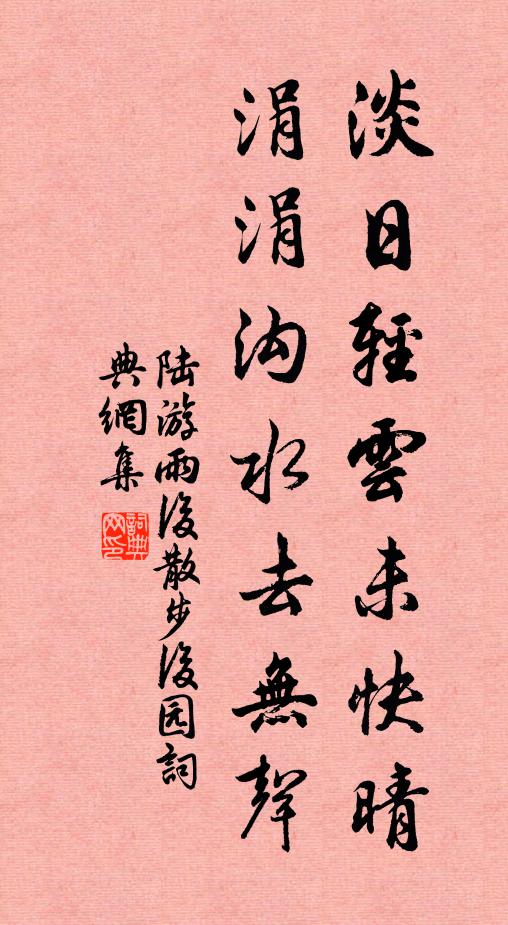 淡日輕雲未快晴
涓涓沟水去無聲
陆游雨後散步後园詞
典網集
詞典網印